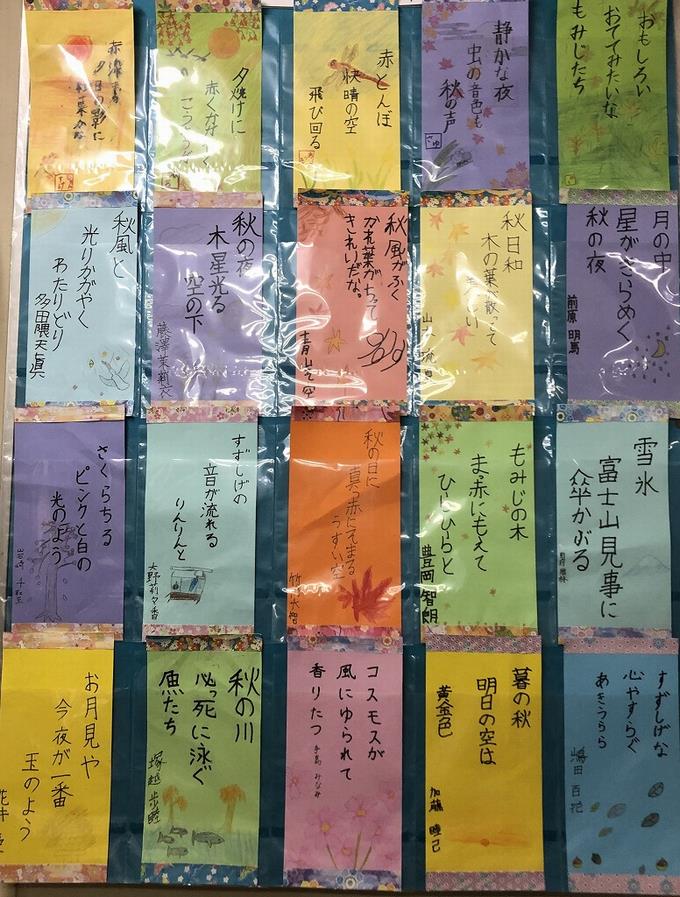 おもしろい
おててみたいな
もみじたち
静かな夜
虫の音色も
秋の声
赤とんぼ
快晴の空
飛び回る
夕焼けに
赤く
夕日の影に
月の中
星がきらめく
秋の夜
前原 明馬
秋日和
木の葉が散って
秋風がふく
かれ葉がちって
きれいだな。
秋の夜
木星光る
空の下
藤澤茉莉衣
秋風と
光りかがやく
わたりどり
多田隈天真
雪氷
富士山見事に
傘かぶる
もみじの木
まっ赤にもえて
ひらひらと
豊岡智朗
秋の日に
真っ赤にそまる
うすい空
すずしげの
音が流れる
りんりんと
さくらちる
ピンクと白の
光のよう
すずしげな
心やすらぐ
あきうらら
嶋田 百花
暮の秋
明日の空は
黄金色
加藤 睦己
コスモスが
風にゆられて
香りたつ
手島 みなみ
秋の川
必っ死に泳ぐ
魚たち
塚越 歩睦
お月見や
今夜が一番
玉のよう